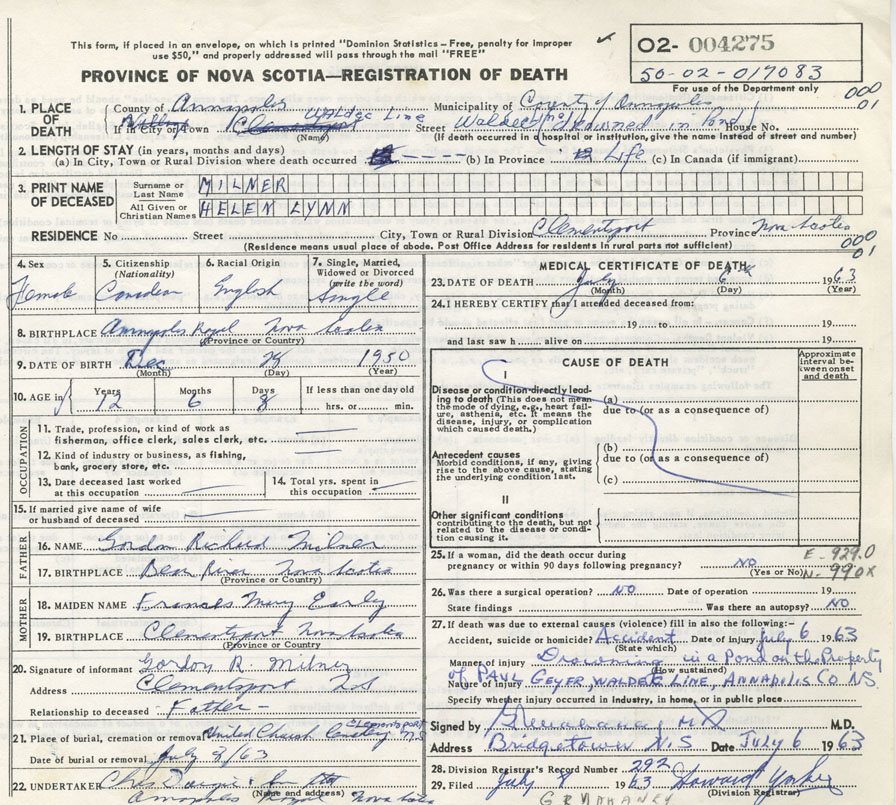 This form, if placed in an envelope, on which is printed "Dominion Statistics – Free, penalty for improper
use $50," and properly addressed will pass through the mail "FREE"
PROVINCE OF NOVA SCOTIA—REGISTRATION OF DEATH
O2- 004275
50-02-017083
For use of the Department only
000
01
1. PLACE OF DEATH
County of Annapolis Municipality of County of Annapolis
If in City or Town Waldec Line Street Waldec (no) Drowned in Pond House No.
(Name) (If death occurred in a hospital or institution, give the name instead of street and number)
2. LENGTH OF STAY (in years, months and days)
(a) In City, Town or Rural Division where death occurred (b) In Province Life (c) In Canada (if immigrant)
3. PRINT NAME OF DECEASED
Surname or Last Name MILNER
All Given or Christian Names HELEN LYNN
RESIDENCE No. Street City, Town or Rural Division Clementsport Province Nova Scotia
(Residence means usual place of abode. Post Office Address for residents in rural parts not sufficient)
000
01
4. Sex
Female
5. Citizenship (Nationality)
Canadian
6. Racial Origin
English
7. Single, Married, Widowed or Divorced (write the word)
Single
8. BIRTHPLACE Annapolis Royal Nova Scotia
(Province or Country)
9. DATE OF BIRTH Dec 28 1950
(Month) (Day) (Year)
10. AGE in Years Months Days If less than one day old
12 6 8 hrs. or min.
OCCUPATION
11. Trade, profession, or kind of work as fisherman, office clerk, sales clerk, etc.
12. Kind of industry or business, as fishing, bank, grocery store, etc.
13. Date deceased last worked at this occupation
14. Total yrs. spent in this occupation
15. If married give name of wife or husband of deceased
FATHER
16. NAME Gordon Richard Milner
17. BIRTHPLACE Bear River Nova Scotia
(Province or Country)
MOTHER
18. MAIDEN NAME Frances Mary Early
19. BIRTHPLACE Clementsport Nova Scotia
(Province or Country)
20. Signature of informant Gordon R. Milner
Address Clementsport NS
Relationship to deceased - Father -
21. Place of burial, cremation or removal United Church Cemetery Clementsport N.S
Date of burial or removal July 8/63
22. UNDERTAKER
(Name and address)
Annapolis Royal Nova Scotia
MEDICAL CERTIFICATE OF DEATH
23. DATE OF DEATH July 6th 1963
(Month) (Day) (Year)
24. I HEREBY CERTIFY that I attended deceased from:
19 to 19
and last saw h alive on 19
CAUSE OF DEATH
Approximate interval between onset and death
I
Disease or condition directly leading to death (This does not mean the mode of dying, e.g., heart failure, asthenia, etc. It means the disease, injury, or complication which caused death.)
(a)
due to (or as a consequence of)
Antecedent causes
Morbid conditions, if any, giving rise to the above cause, stating the underlying condition last.
(b)
due to (or as a consequence of)
(c)
II
Other significant conditions
contributing to the death, but not related to the disease or condition causing it.
25. If a woman, did the death occur during pregnancy or within 90 days following pregnancy? NO
(Yes or No)
E-929.0
N-990X
26. Was there a surgical operation? NO Date of operation 19
State findings Was there an autopsy? NO
27. If death was due to external causes (violence) fill in also the following:–
Accident, suicide or homicide? Accident Date of injury July 6 1963
(State which)
Manner of injury Drowning in a Pond on the Property
(How sustained)
Nature of injury of PAUL GEYER, WALDEC LINE, ANNAPOLIS CO NS.
Specify whether injury occurred in industry, in home, or in public place
Signed by M.D.
Address Bridgetown N.S Date July 6 1963
28. Division Registrar's Record Number 292
29. Filed July 8 1963 Howard Yorke
(Division Registrar)
G R MAHANEY